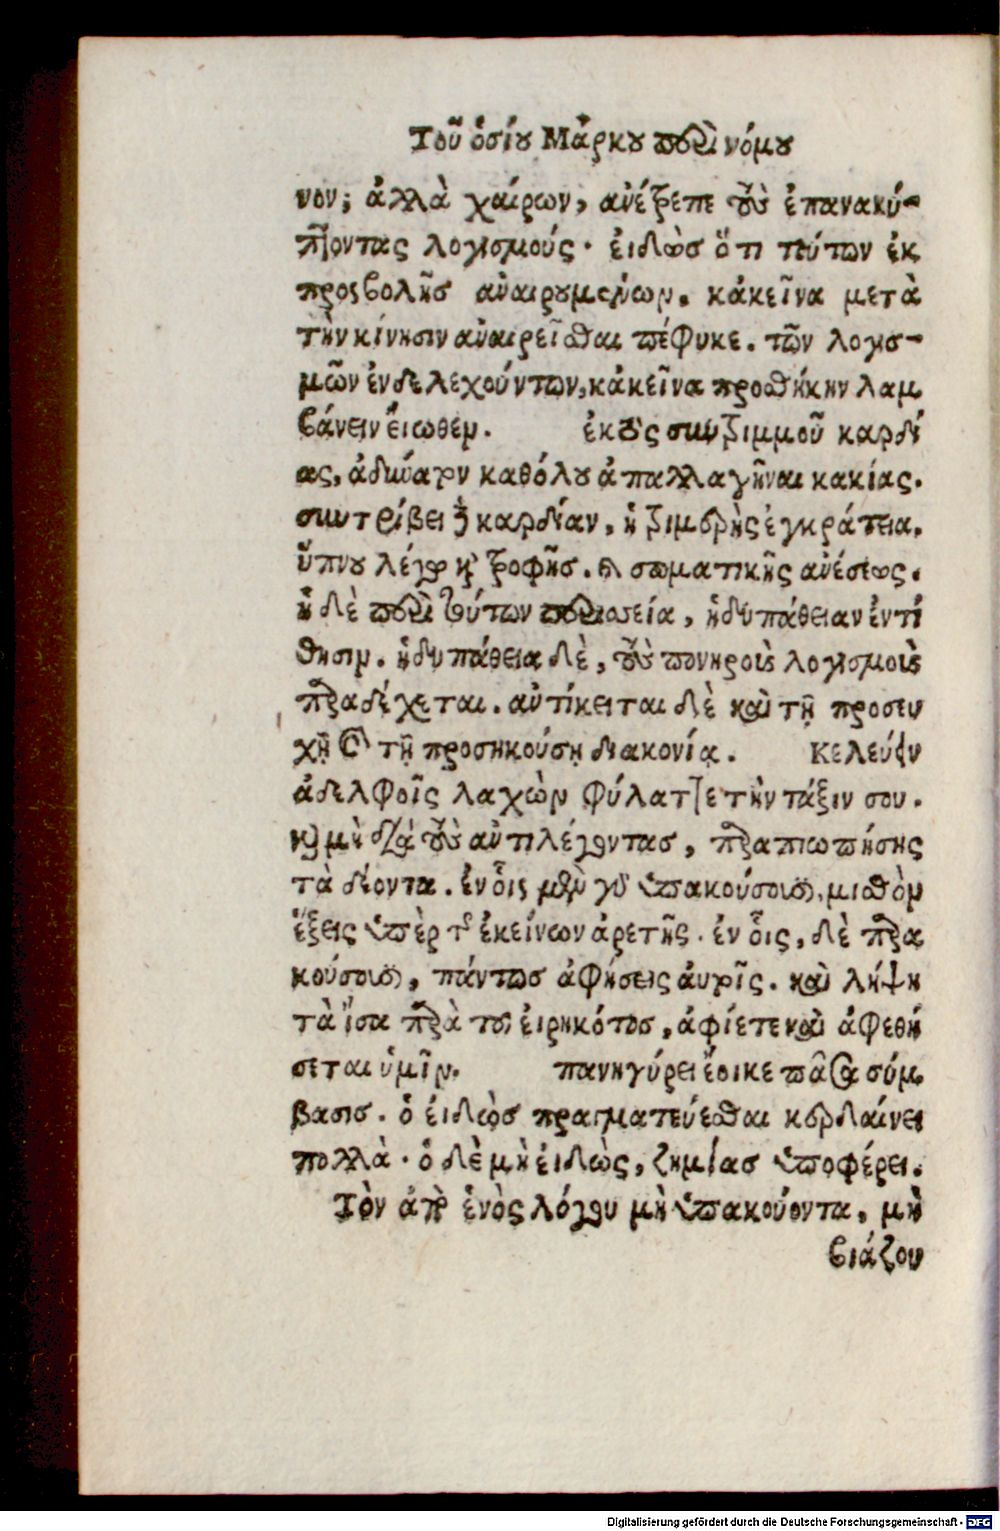 Τοῦ ὁσίου Μάρκου περὶ νόμου
νον; ἀλλὰ χαίρων, ἀνέτρεπε τοὺς ἐπανακύ-
πτοντας λογισμούς· εἰδὼς ὅτι τούτων ἐκ
προσβολῆς ἀναιρουμένων, κἀκεῖνα μετὰ
τὴν κίνησιν ἀναιρεῖσθαι πέφυκε. τῶν λογισ-
μῶν ἐνδελεχούντων, κἀκεῖνα προσθήκην λαμ
βάνειν εἴωθεν. ἐκτὸς συντριμμοῦ καρδί
ας, ἀδύνατον καθόλου ἀπαλλαγῆναι κακίας.
συντρίβει τὴν καρδίαν, ἡ τριμερὴς ἐγκράτεια.
ὕπνου λέγω καὶ τροφῆς. καὶ σωματικῆς ἀνέσεως.
ἡ δὲ περὶ τούτων περισσεία, ἡδυπάθειαν ἐντί
θησιν. ἡδυπάθεια δὲ, τοὺς πονηροὺς λογισμοὺς
παραδέχεται. ἀντίκειται δὲ καὶ τῇ προσευ
χῇ καὶ τῇ προσηκούσῃ διακονίᾳ. Κελεύειν
ἀδελφοῖς λαχὼν φύλαττε τὴν τάξιν σου.
καὶ μὴ διὰ τοὺς ἀντιλέγοντας, παρασιωπήσῃς
τὰ δέοντα. ἐν οἷς μὲν γὰρ ὑπακούσουσι, μισθὸν
ἕξεις ὑπὲρ τῆς ἐκείνων ἀρετῆς. ἐν οἷς, δὲ παρα
κούσουσι, πάντως ἀφήσεις αὐτοῖς. καὶ λήψῃ
τὰ ἴσα παρὰ τοῦ εἰρηκότος, ἀφίετε καὶ ἀφεθή
σεται ὑμῖν. πανηγύρει ἔοικε πᾶσα σύμ
βασις. ὁ εἰδὼς πραγματεύεσθαι κερδαίνει
πολλὰ· ὁ δὲ μὴ εἰδὼς, ζημίας ὑποφέρει.
Τὸν ἀπὸ ἑνὸς λόγου μὴ ὑπακούοντα, μὴ
βιάζου
Digitalisierung gefördert durch die Deutsche Forschungsgemeinschaft - DFG